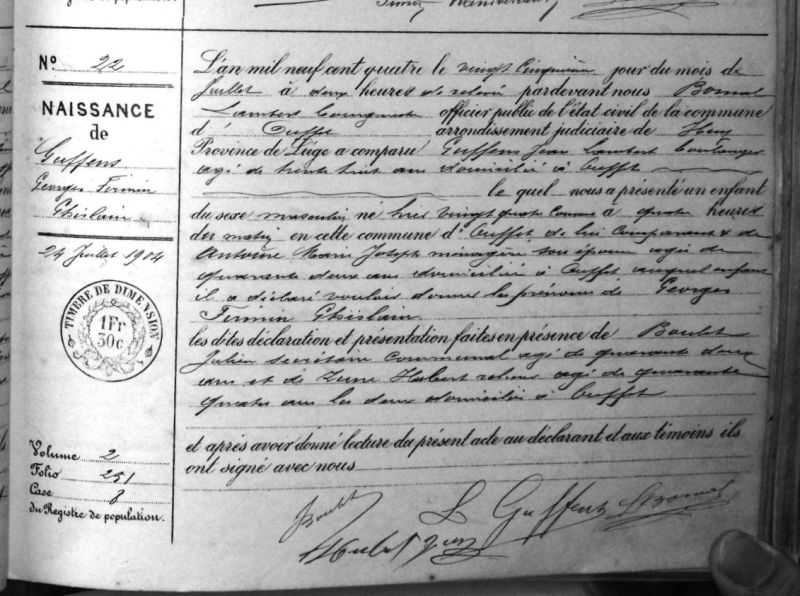 N° 22
NAISSANCE
de
Guffens
Georges Firmin
Ghislain
24 Juillet 1904
TIMBRE DE DIMENSION
1Fr
30c
Volume 2
Folio 251
Case 8
du Registre de population.
L'an mil neuf cent quatre le vingt cinquième jour du mois de
Juillet à deux heures de relevée pardevant nous Bomal
Lambert Bourgmestre officier public de l'état civil de la commune
d' Ouffet arrondissement judiciaire de Huy
Province de Liége a comparu Guffens Jean Lambert boulanger
agé de trente huit ans domicilié à Ouffet
le quel nous a présenté un enfant
du sexe masculin né hier vingt quatre courant à quatre heures
du matin en cette commune d'Ouffet de lui comparant & de
Antoine Marie Joseph ménagère son épouse agée de
quarante deux ans domiciliée à Ouffet auquel enfant
il a déclaré vouloir donner les prénoms de Georges
Firmin Ghislain
les dites déclaration et présentation faites en présence de Boulet
Julien secrétaire communal agé de quarante deux
ans et de Hubert agé de quarante
quatre ans les deux domiciliés à Ouffet
et après avoir donné lecture du présent acte au déclarant et aux témoins ils
ont signé avec nous
JBoulet L Guffens LBomal
Hubert